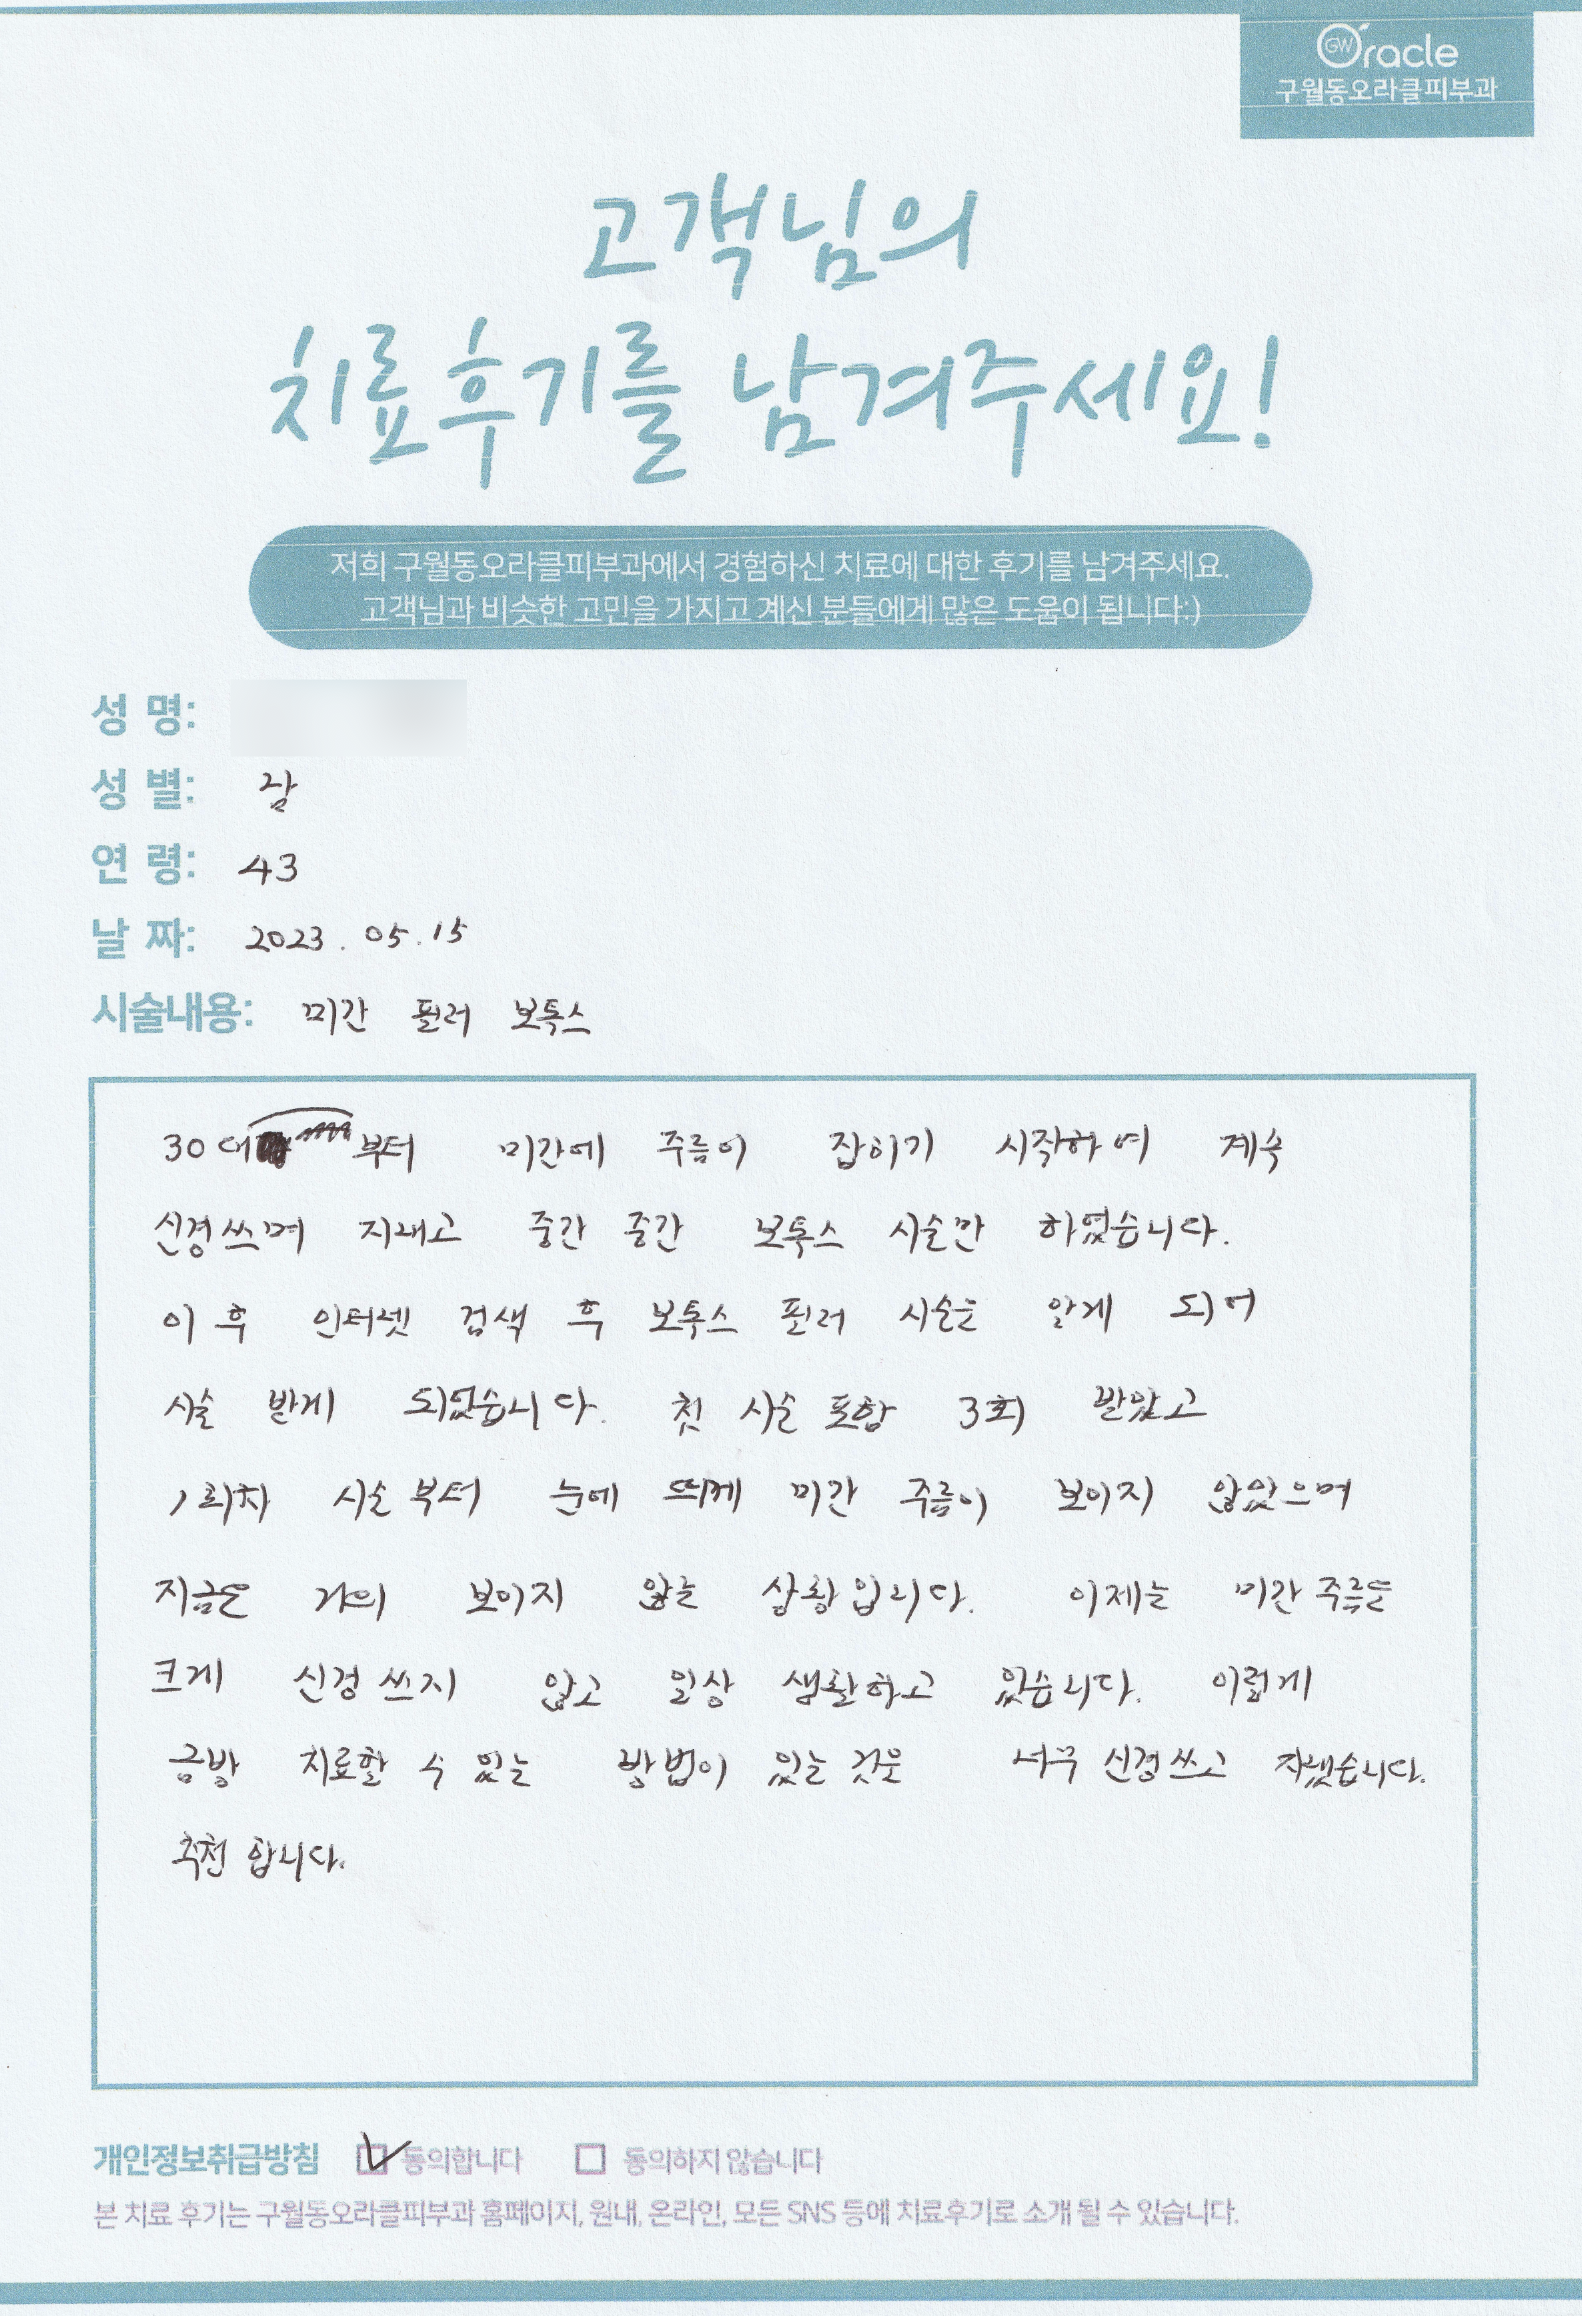 GW Oracle
구월동오라클피부과
고객님의
치료후기를 남겨주세요!
저희 구월동오라클피부과에서 경험하신 치료에 대한 후기를 남겨주세요.
고객님과 비슷한 고민을 가지고 계신 분들에게 많은 도움이 됩니다:)
성 명:
성 별: 남
연 령: 43
날 짜: 2023.05.15
시술내용: 미간 필러 보톡스
30대부터 미간에 주름이 잡히기 시작하여 계속
신경쓰며 지내고 중간 중간 보톡스 시술만 하였습니다.
이 후 인터넷 검색 후 보톡스 필러 시술을 알게 되어
시술 받게 되었습니다. 첫 시술 포함 3회 받았고
1회차 시술부터 눈에 띄게 미간 주름이 보이지 않았으며
지금은 거의 보이지 않는 상황입니다. 이제는 미간주름을
크게 신경쓰지 않고 일상 생활하고 있습니다. 이렇게
금방 치료할 수 있는 방법이 있는 것을 너무 신경쓰고 지냈습니다.
추천 합니다.
개인정보취급방침 동의합니다 동의하지 않습니다
본 치료 후기는 구월동오라클피부과 홈페이지, 원내, 온라인, 모든 SNS 등에 치료후기로 소개 될 수 있습니다.